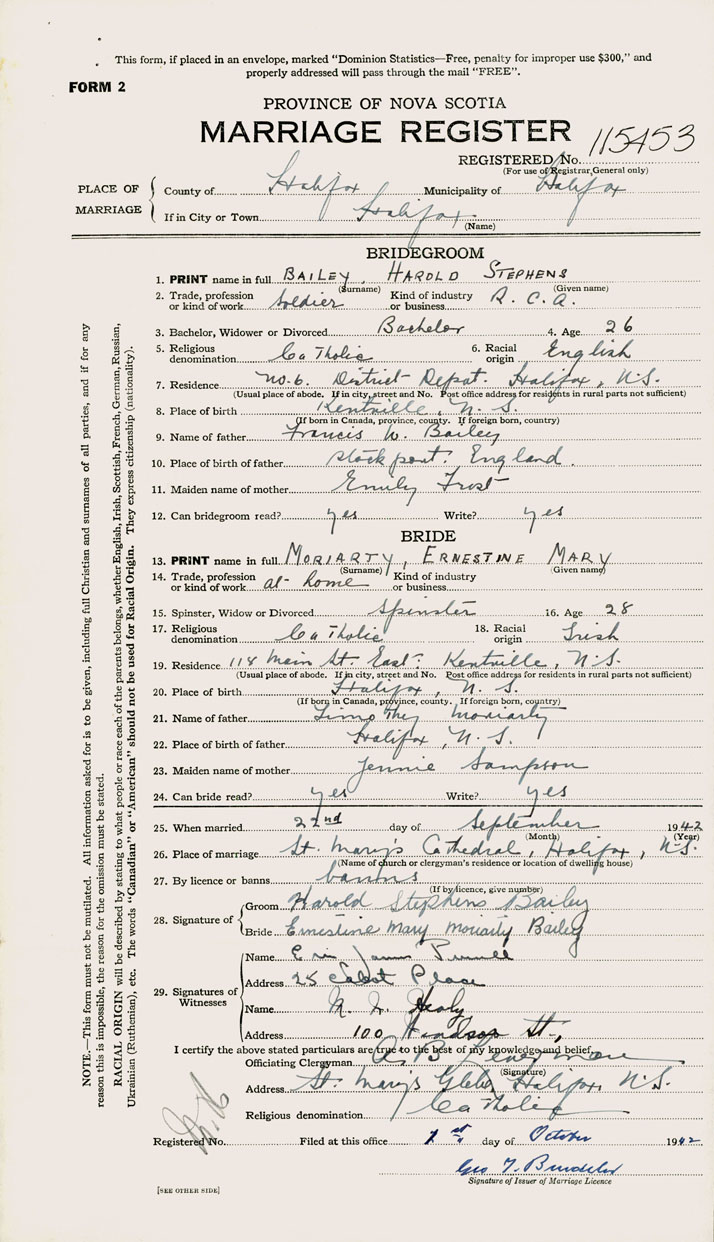 This form, if placed in an envelope, marked "Dominion Statistics—Free, penalty for improper use $300," and
properly addressed will pass through the mail "FREE".
FORM 2
PROVINCE OF NOVA SCOTIA
MARRIAGE REGISTER
REGISTERED No. 115453
(For use of Registrar General only)
PLACE OF MARRIAGE
County of Halifax Municipality of Halifax
If in City or Town Halifax
(Name)
BRIDEGROOM
1. PRINT name in full BAILEY, HAROLD STEPHENS
(Surname) (Given name)
2. Trade, profession or kind of work Soldier Kind of industry or business R. C. A.
3. Bachelor, Widower or Divorced Bachelor 4. Age 26
5. Religious denomination Catholic 6. Racial origin English
7. Residence No. 6. District Depot. Halifax, N.S.
(Usual place of abode. If in city, street and No. Post office address for residents in rural parts not sufficient)
8. Place of birth Kentville, N. S.
(If born in Canada, province, county. If foreign born, country)
9. Name of father Francis W. Bailey
10. Place of birth of father Stockport. England.
11. Maiden name of mother Emily Frost
12. Can bridegroom read? yes Write? yes
BRIDE
13. PRINT name in full MORIARTY, ERNESTINE MARY
(Surname) (Given name)
14. Trade, profession or kind of work at home Kind of industry or business
15. Spinster, Widow or Divorced Spinster 16. Age 28
17. Religious denomination Catholic 18. Racial origin Irish
19. Residence 114 Main St. East. Kentville, N.S.
(Usual place of abode. If in city, street and No. Post office address for residents in rural parts not sufficient)
20. Place of birth Halifax, N. S.
(If born in Canada, province, county. If foreign born, country)
21. Name of father Timothy Moriarty
22. Place of birth of father Halifax, N. S.
23. Maiden name of mother Jennie Sampson
24. Can bride read? yes Write? yes
25. When married 22nd day of September 1942
(Month) (Year)
26. Place of marriage St. Mary's Cathedral, Halifax, N.S.
(Name of church or clergyman's residence or location of dwelling house)
27. By licence or banns banns
(If by licence, give number)
28. Signature of
Groom Harold Stephens Bailey
Bride Ernestine Mary Moriarty Bailey
29. Signatures of Witnesses
Name
Address 25 Cabot Place
Name M. Healy
Address 100 Windsor St.,
I certify the above stated particulars are true to the best of my knowledge and belief.
Officiating Clergyman A. B.
(Signature)
Address St. Mary's Glebe, Halifax, N.S.
Religious denomination Catholic
Registered No. Filed at this office 1st day of October 1942
Geo
Signature of Issuer of Marriage Licence
[SEE OTHER SIDE]
NOTE.—This form must not be mutilated. All information asked for is to be given, including full Christian and surnames of all parties, and if for any
reason this is impossible, the reason for the omission must be stated.
RACIAL ORIGIN will be described by stating to what people or race each of the parents belongs, whether English, Irish, Scottish, French, German, Russian,
Ukrainian (Ruthenian), etc. The words "Canadian" or "American" should not be used for Racial Origin. They express citizenship (nationality).